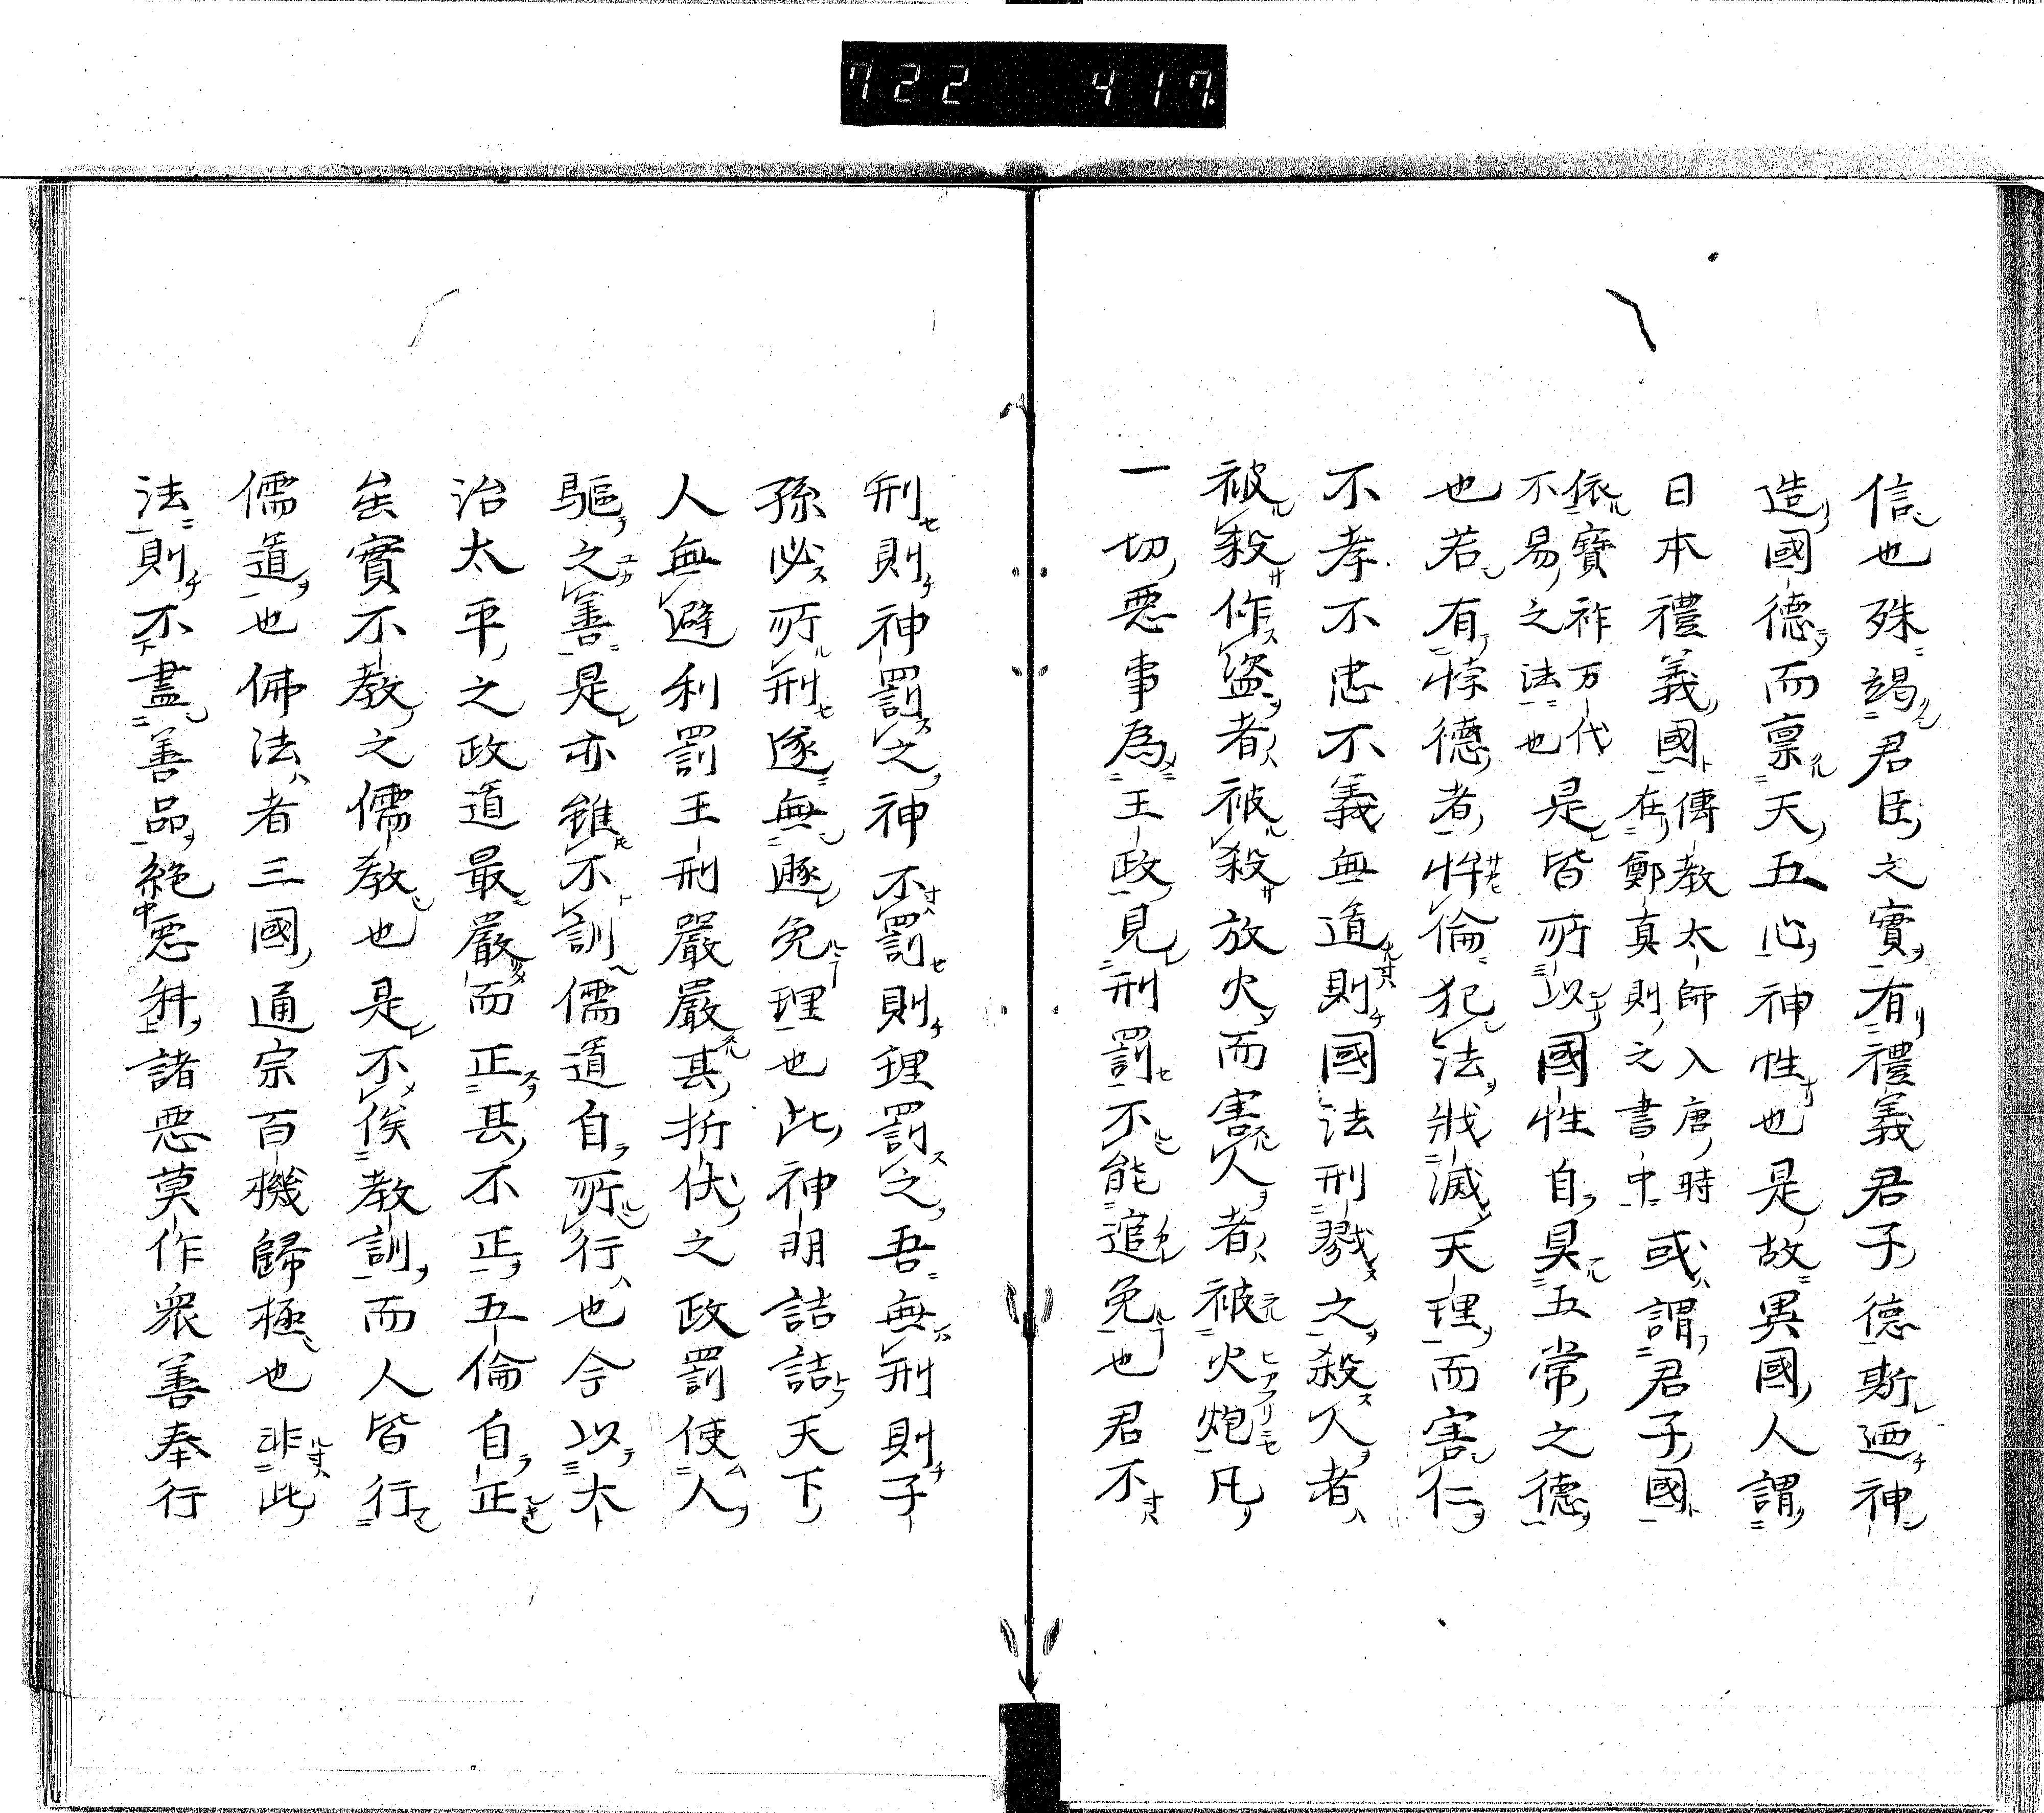 722 417
信也殊竭君臣之實有禮義君子德斯廼神
造國德而禀天五心神性也是故異國人謂
日本禮義國
傳教太師入唐時
在鄭真則之書中
或謂君子國
依寶祚万代
不易之法也
是皆所以國性自具五常之德
也若有悖德者忤倫犯法戕滅天理而害仁
不孝不忠不義無道則國法刑戮之殺人者
被殺作盜者被殺放火而害人者被火炮凡
一切惡事為王政見刑罰不能逭免也君不
刑則神罰之神不罰則理罰之吾無刑則子
孫必所刑遂無遯免理也此神明詰詰天下
人無避利罰王刑嚴嚴甚折伏之政罰使人
驅之善是亦雖不訓儒道自所行也今以太
治太平之政道最嚴而正甚不正五倫自正
矣實不教之儒教也是不俟教訓而人皆行
儒道也佛法者三國通宗百機歸極也非此
法則不盡善品絕惡科諸惡莫作衆善奉行